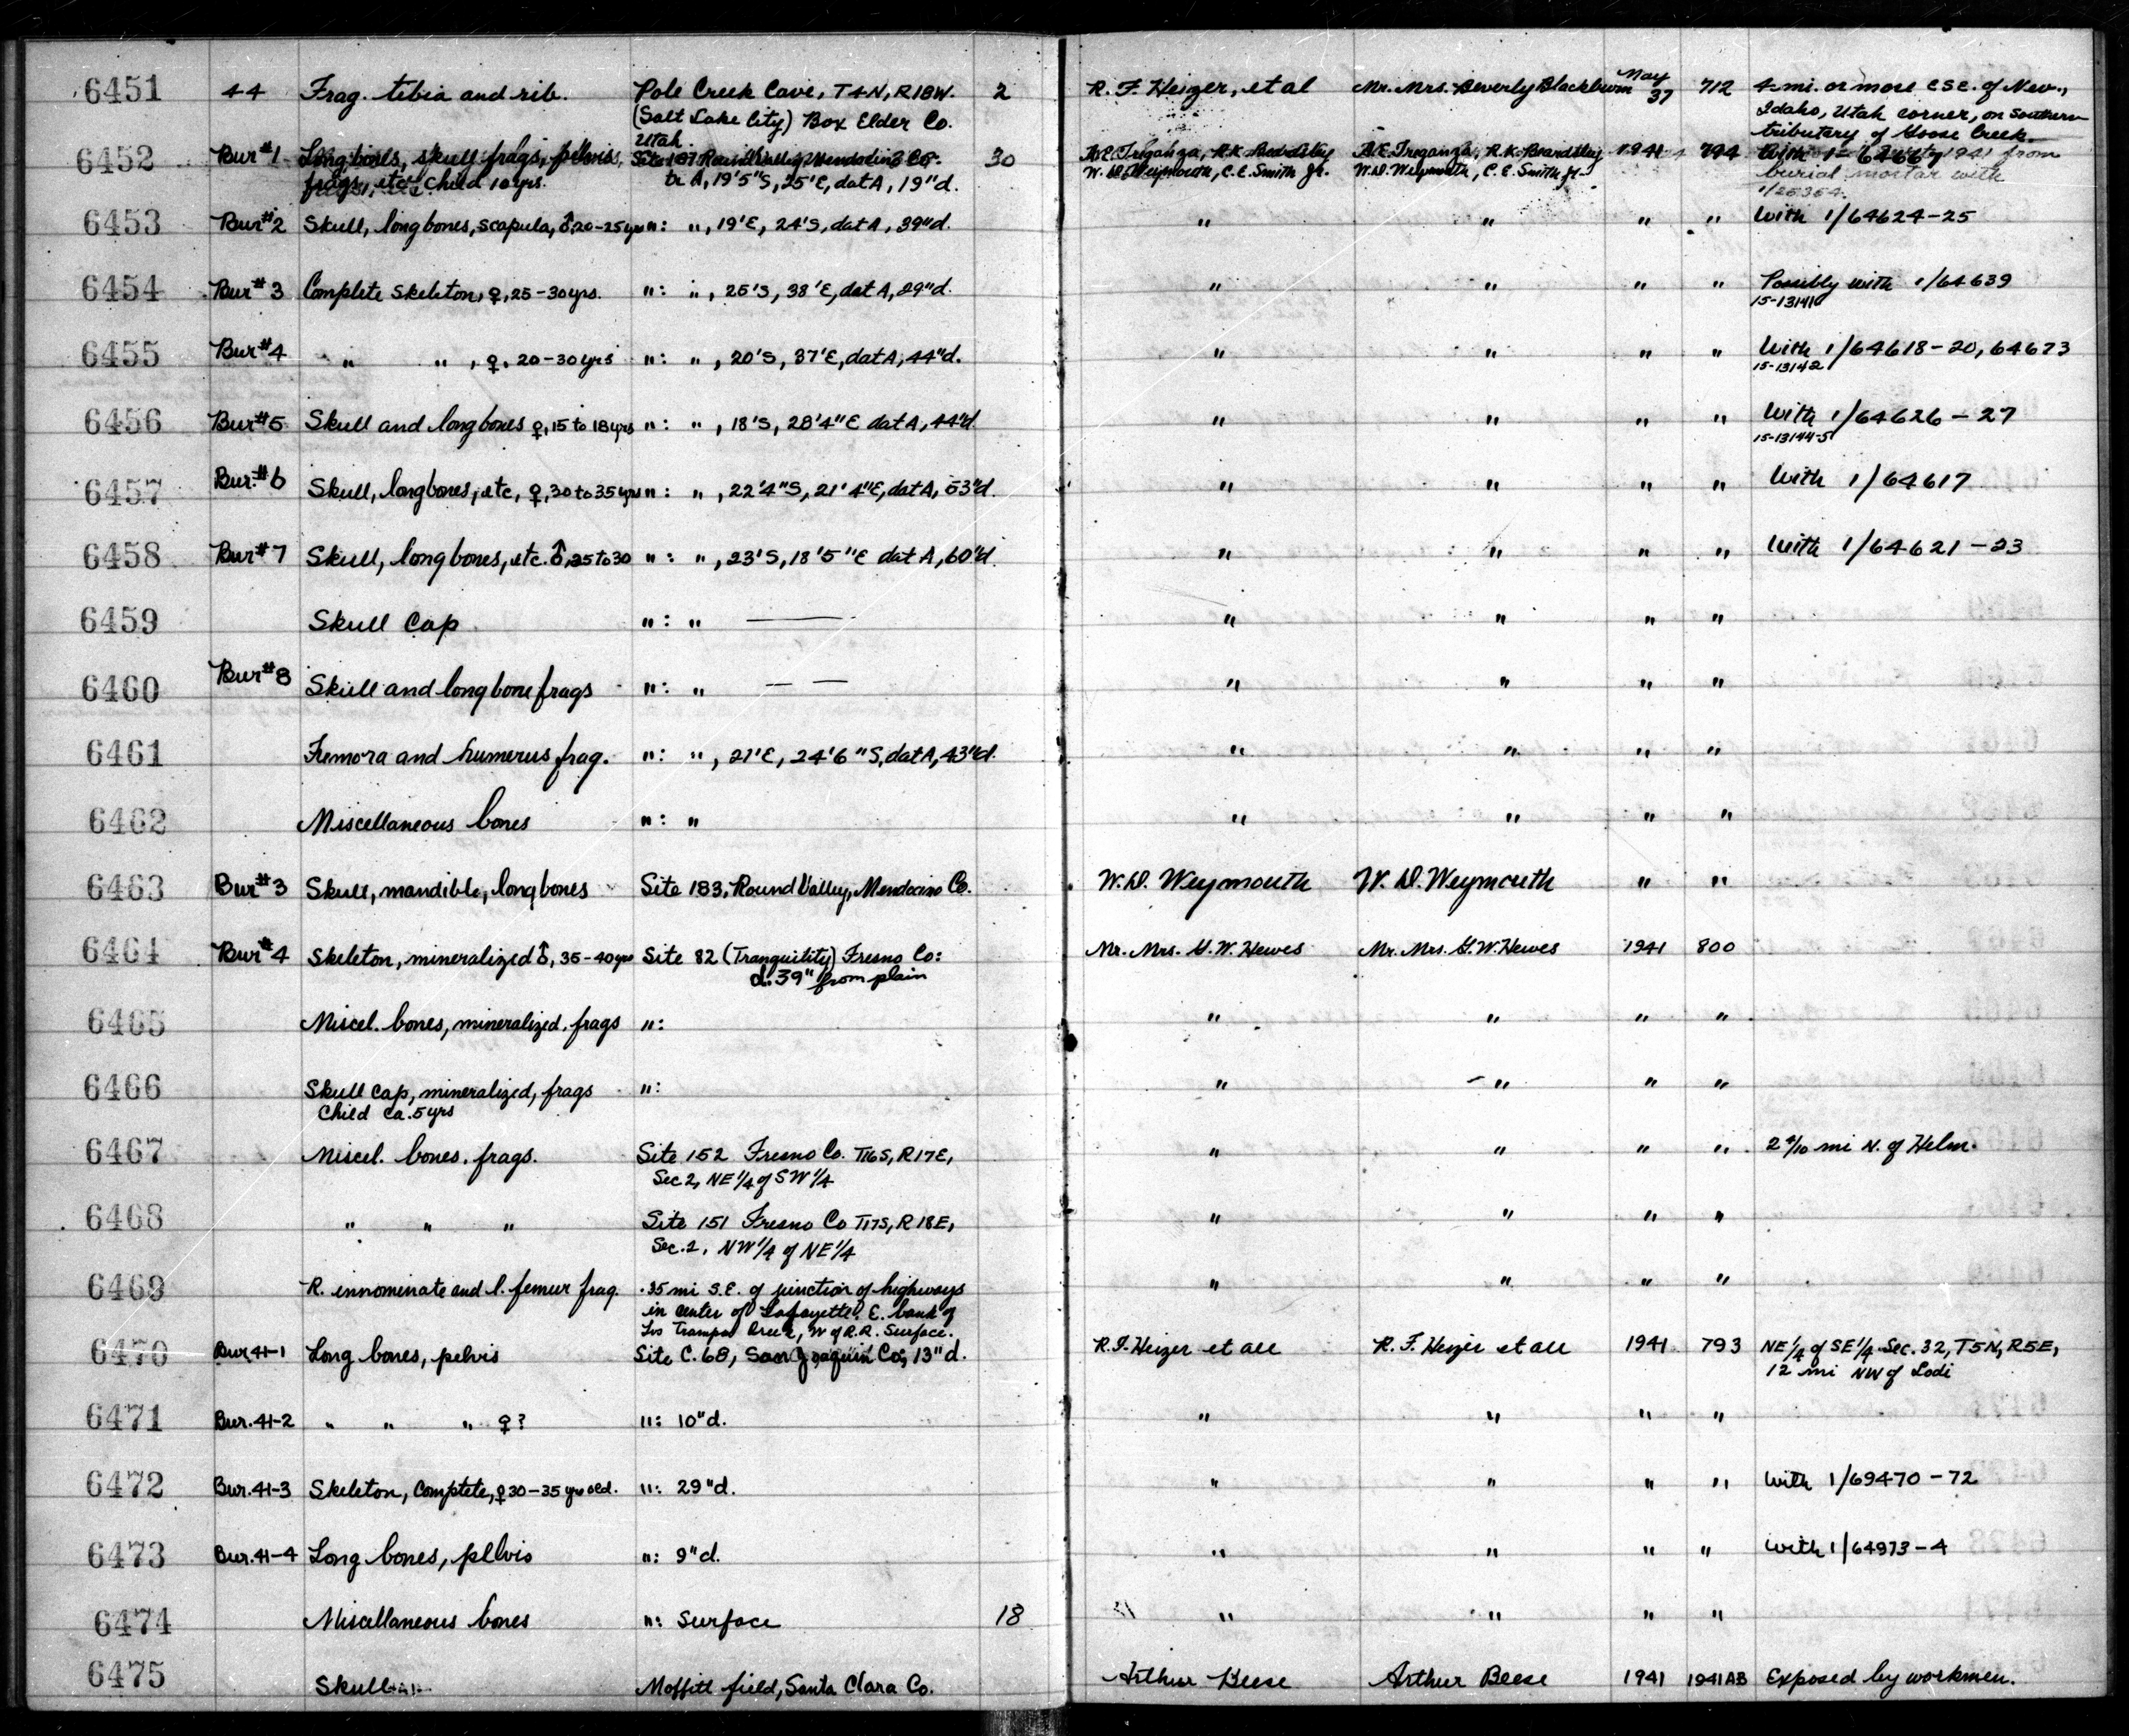 6451 44 Frag. tibia and rib. Pole Creek Cave, T4N, R18W. 2 R. F. Heizer, et al Mr. Mrs. Beverly Blackburn May 37 712 4 mi. or more ESE. of Nev.,
(Salt Lake City) Box Elder Co. Idaho, Utah corner, on Southern
Utah. tributary of Goose Creek.
6452 Bur #1 Long bones, skull frags, pelvis, Site 187 Round Valley, Mendocino Co. 30 A.E. Treganza, R.K. Beardsley A.E. Treganza, R.K. Beardsley 1941 794 With 1941 from
frags, etc. child 10 yrs. tr A, 19'5"S, 25'E, dat A, 19"d. W. D. Weymouth, C.E. Smith Jr. W.D. Weymouth, C.E. Smith Jr. burial mortar with
6453 Bur #2 Skull, long bones, scapula, ♂, 20-25 yrs ": ", 19'E, 24'S, dat A, 39"d. " " " " With 1/64624-25
6454 Bur #3 Complete Skeleton, ♀, 25-30 yrs. ": ", 25'S, 38'E, dat A, 29"d. " " " " Possibly with 1/64639
15-13141
6455 Bur #4 " ", ♀, 20-30 yrs ": ", 20'S, 37'E, dat A, 44"d. " " " " With 1/64618-20, 64673
15-13142
6456 Bur #5 Skull and long bones ♀, 15 to 18 yrs ": ", 18'S, 28'4"E dat A, 44"d. " " " " With 1/64626-27
15-13144-5
6457 Bur. #6 Skull, long bones, etc, ♀, 30 to 35 yrs ": ", 22'4"S, 21'4"E, dat A, 53"d. " " " " With 1/64617
6458 Bur #7 Skull, long bones, etc. ♂, 25 to 30 ": ", 23'S, 18'5"E dat A, 60"d. " " " " With 1/64621-23
6459 Skull Cap ": " — " " " "
6460 Bur #8 Skull and long bone frags ": " — — " " " "
6461 Femora and humerus frag. ": ", 21'E, 24'6"S, dat A, 43"d. " " " "
6462 Miscellaneous bones ": " " " " "
6463 Bur #3 Skull, mandible, long bones Site 183, Round Valley, Mendocino Co. W.D. Weymouth W. D. Weymouth " "
6464 Bur #4 Skeleton, mineralized ♂, 35-40 yrs Site 82 (Tranquility) Fresno Co: Mr. Mrs. G.W. Hewes Mr. Mrs. G.W. Hewes 1941 800
d. 39" from plain
6465 Miscel. bones, mineralized, frags ": " " " "
6466 Skull cap, mineralized, frags ": " " " "
Child ca. 5 yrs
6467 Miscel. bones, frags. Site 152 Fresno Co. T16S, R17E, " " " " 2 4/10 mi N. of Helm.
Sec 2, NE 1/4 of SW 1/4
6468 " " " Site 151 Fresno Co T17S, R18E, " " " "
Sec. 2, NW 1/4 of NE 1/4
6469 R. innominate and l. femur frag. .35 mi S.E. of junction of highways " " " "
in center of Lafayette. E. bank of
Los Trampas Creek, W of R.R. Surface.
6470 Bur 41-1 Long bones, pelvis Site C. 68, San Joaquin Co; 13"d. R.F. Heizer et all R. F. Heizer et all 1941 793 NE 1/4 of SE 1/4 Sec. 32, T5N, R5E,
12 mi NW of Lodi
6471 Bur. 41-2 " " " ♀? ": 10"d. " " " "
6472 Bur. 41-3 Skeleton, complete, ♀ 30-35 yrs old. ": 29"d. " " " " With 1/69470-72
6473 Bur. 41-4 Long bones, pelvis ": 9"d. " " " " With 1/64973-4
6474 Miscellaneous bones ": Surface 18 " " " "
6475 Skull Moffitt field, Santa Clara Co. Arthur Beese Arthur Beese 1941 1941AB Exposed by workmen.